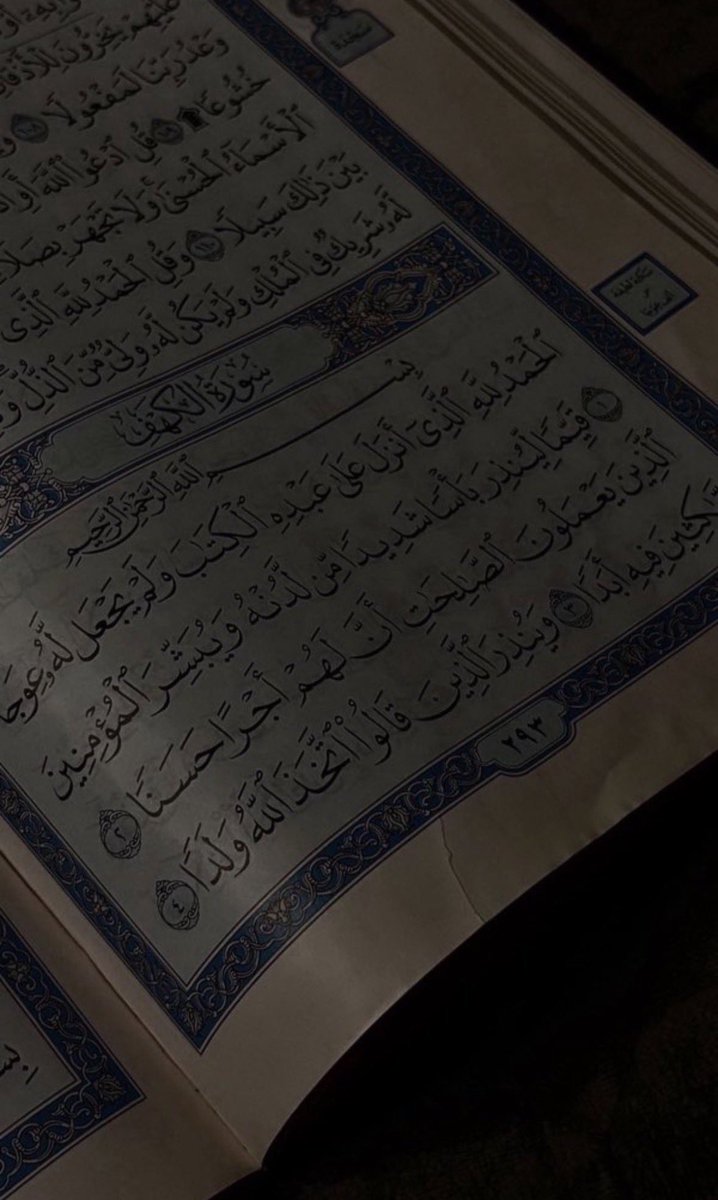 عَلَيْهِمْ يَخِرُّونَ لِلْأَذْقَانِ
وَعْدُ رَبِّنَا لَمَفْعُولًا ١٠٨
خُشُوعًا ۩ ١٠٩ قُلِ ٱدْعُوا۟ ٱللَّهَ أَوِ
ٱلْأَسْمَآءُ ٱلْحُسْنَىٰ وَلَا تَجْهَرْ بِصَلَا
بَيْنَ ذَٰلِكَ سَبِيلًا ١١٠ وَقُلِ ٱلْحَمْدُ لِلَّهِ ٱلَّذِى
لَّهُۥ شَرِيكٌ فِى ٱلْمُلْكِ وَلَمْ يَكُن لَّهُۥ وَلِىٌّ مِّنَ ٱلذُّلِّ
سُورَةُ الكَهْفِ
بِسْمِ ٱللَّهِ ٱلرَّحْمَٰنِ ٱلرَّحِيمِ
ٱلْحَمْدُ لِلَّهِ ٱلَّذِىٓ أَنزَلَ عَلَىٰ عَبْدِهِ ٱلْكِتَٰبَ وَلَمْ يَجْعَل لَّهُۥ عِوَجَا
١ قَيِّمًا لِّيُنذِرَ بَأْسًا شَدِيدًا مِّن لَّدُنْهُ وَيُبَشِّرَ ٱلْمُؤْمِنِينَ
ٱلَّذِينَ يَعْمَلُونَ ٱلصَّٰلِحَٰتِ أَنَّ لَهُمْ أَجْرًا حَسَنًا ٢
مَّٰكِثِينَ فِيهِ أَبَدًا ٣ وَيُنذِرَ ٱلَّذِينَ قَالُوا۟ ٱتَّخَذَ ٱللَّهُ وَلَدًا ٤
٢٩٣